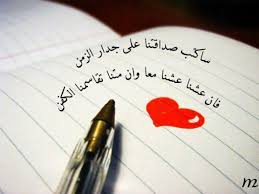 ساكتب صداقتنا على جدار الزمن
فان عشنا عشنا معا وان متنا تقاسمنا الكفن
m